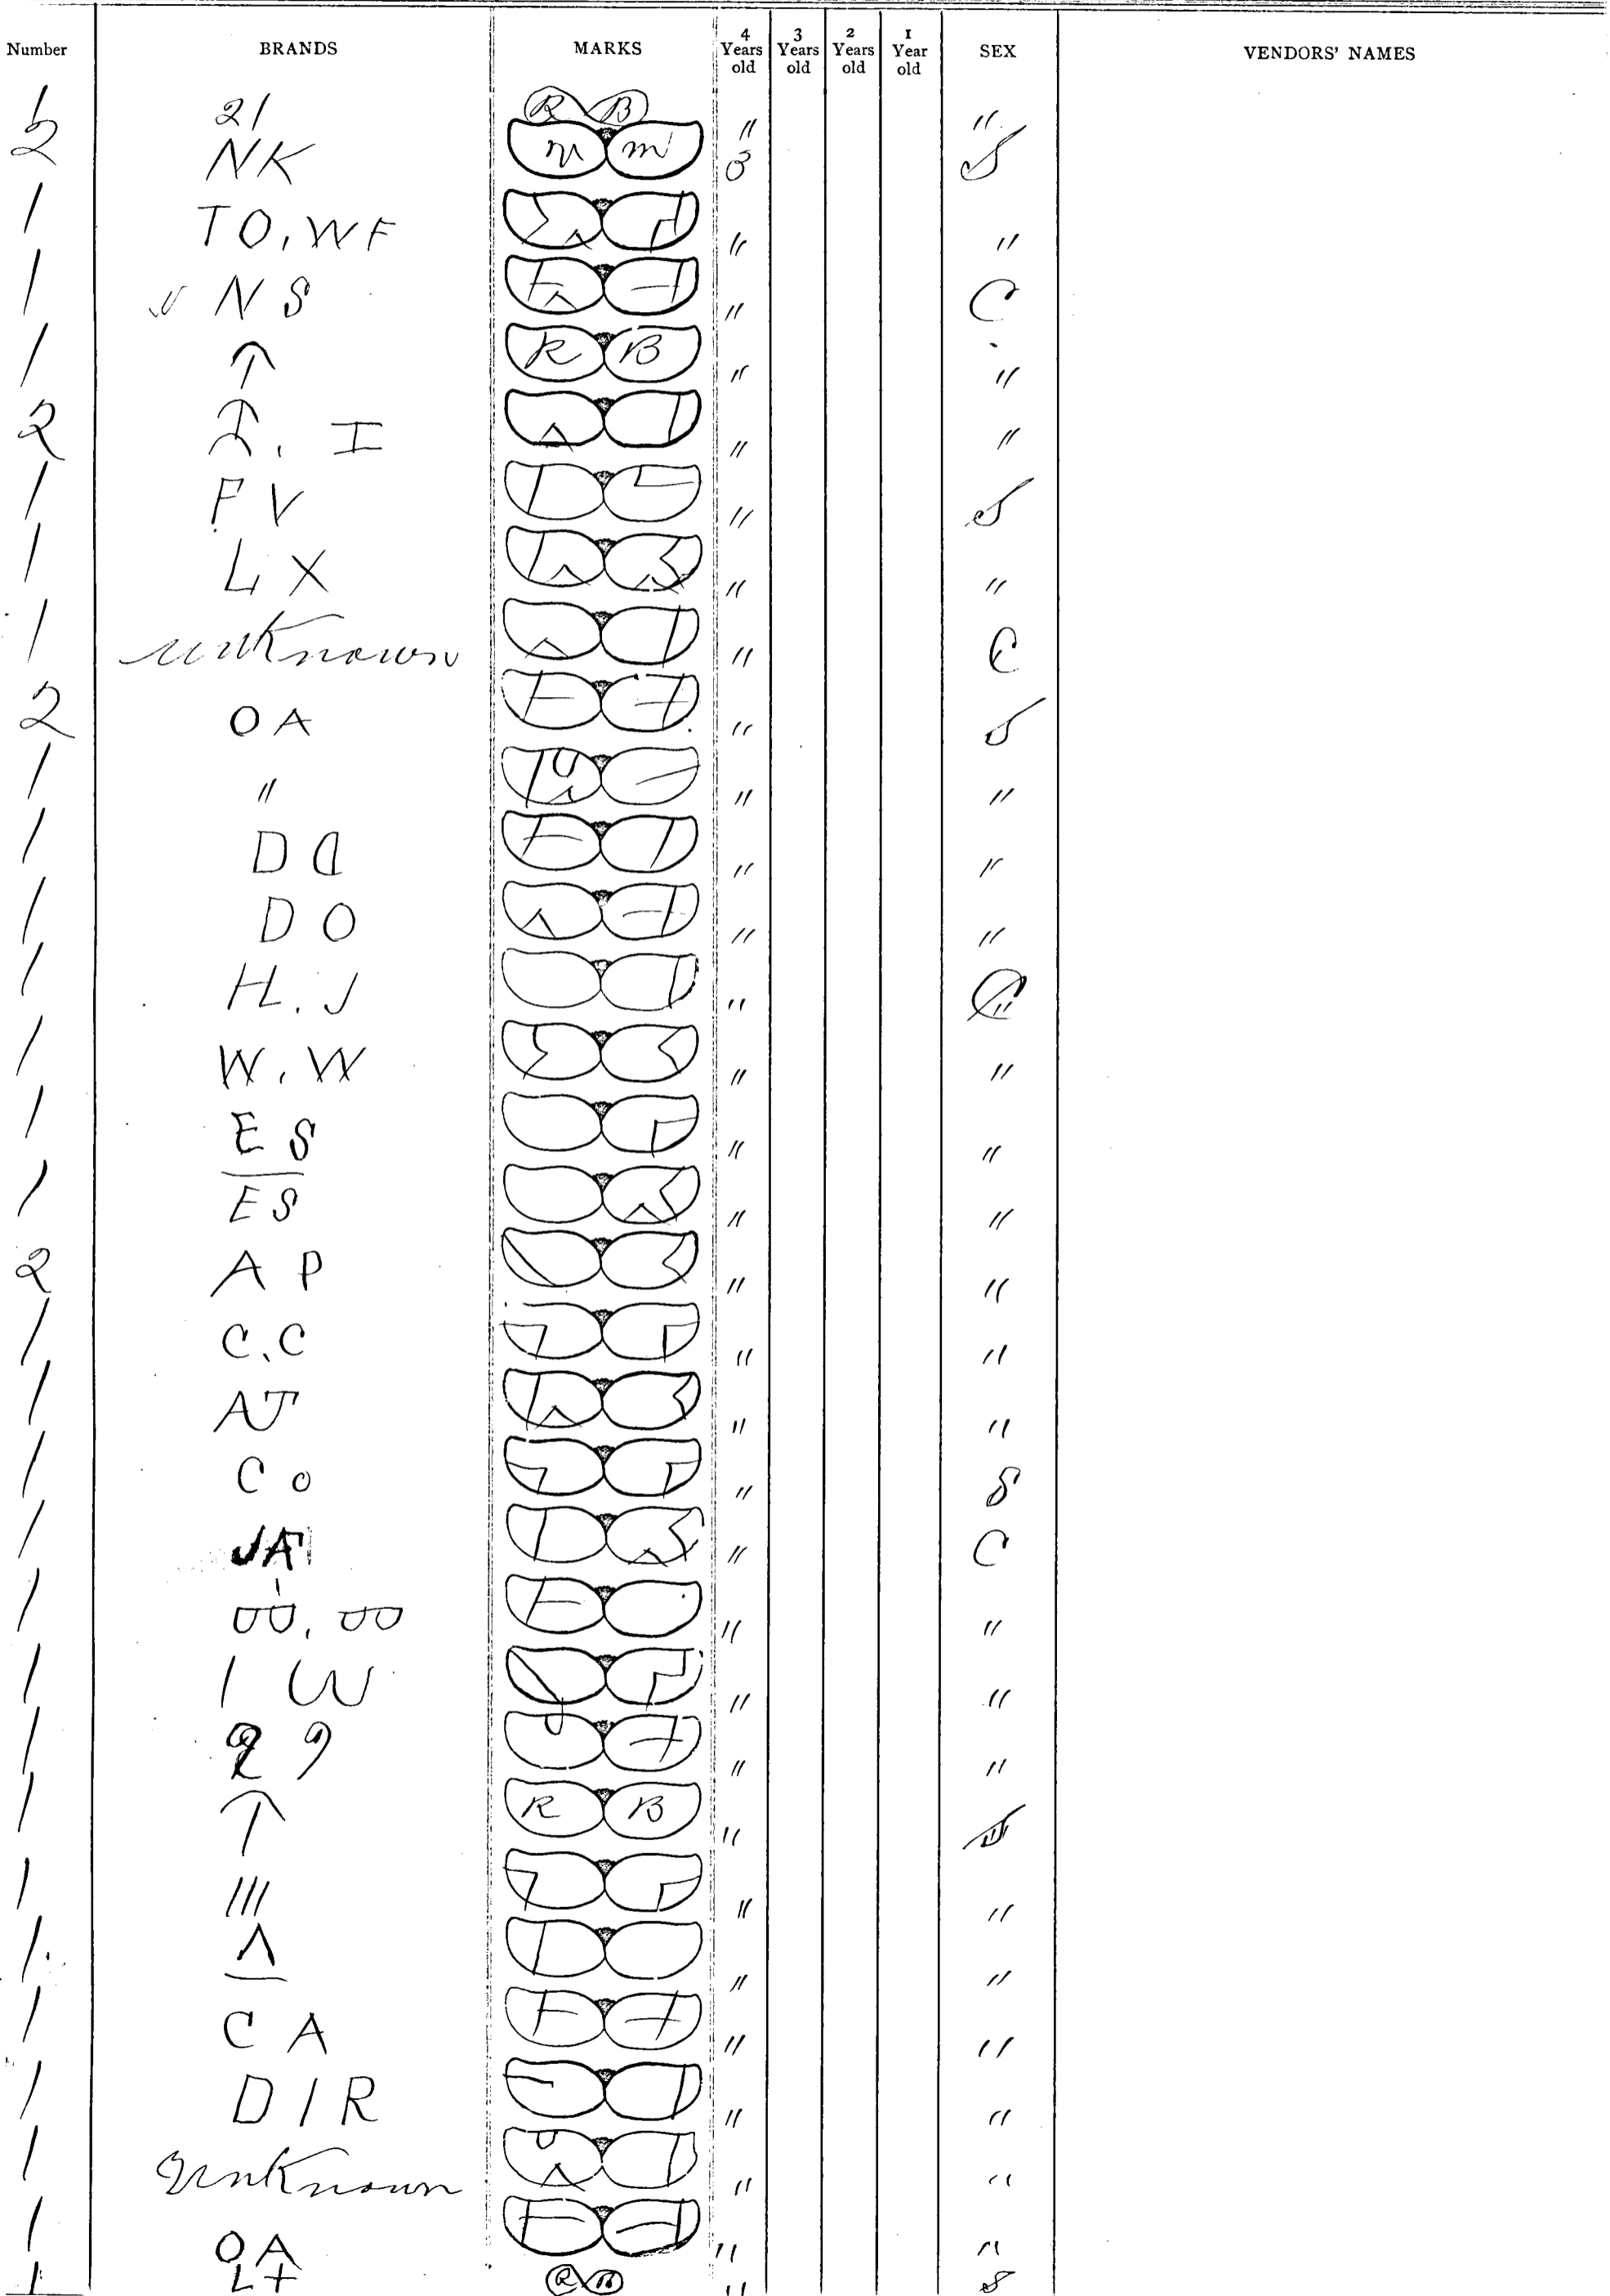 Number BRANDS MARKS 4 Years old 3 Years old 2 Years old 1 Year old SEX VENDORS' NAMES
1 21 R B " "
2 NK m m 3 S
1 TO, WF " "
1 NS " C
1 ↑ R B " "
2 I " "
1 FV " S
1 LX " "
1 unknown " C
2 OA " S
1 " " "
1 D " "
1 DO " "
1 H. J " C
1 W. W " "
1 ES " "
1 ES " "
2 AP " "
1 C.C " "
1 AJ " "
1 Co " S
1 JA " C
1 " "
1 I W " "
1 29 " "
1 ↑ R B "
1 /// " "
1 Λ " "
1 CA " "
1 D I R " "
1 Unknown " "
1 OA " "
1 L+ R B " S